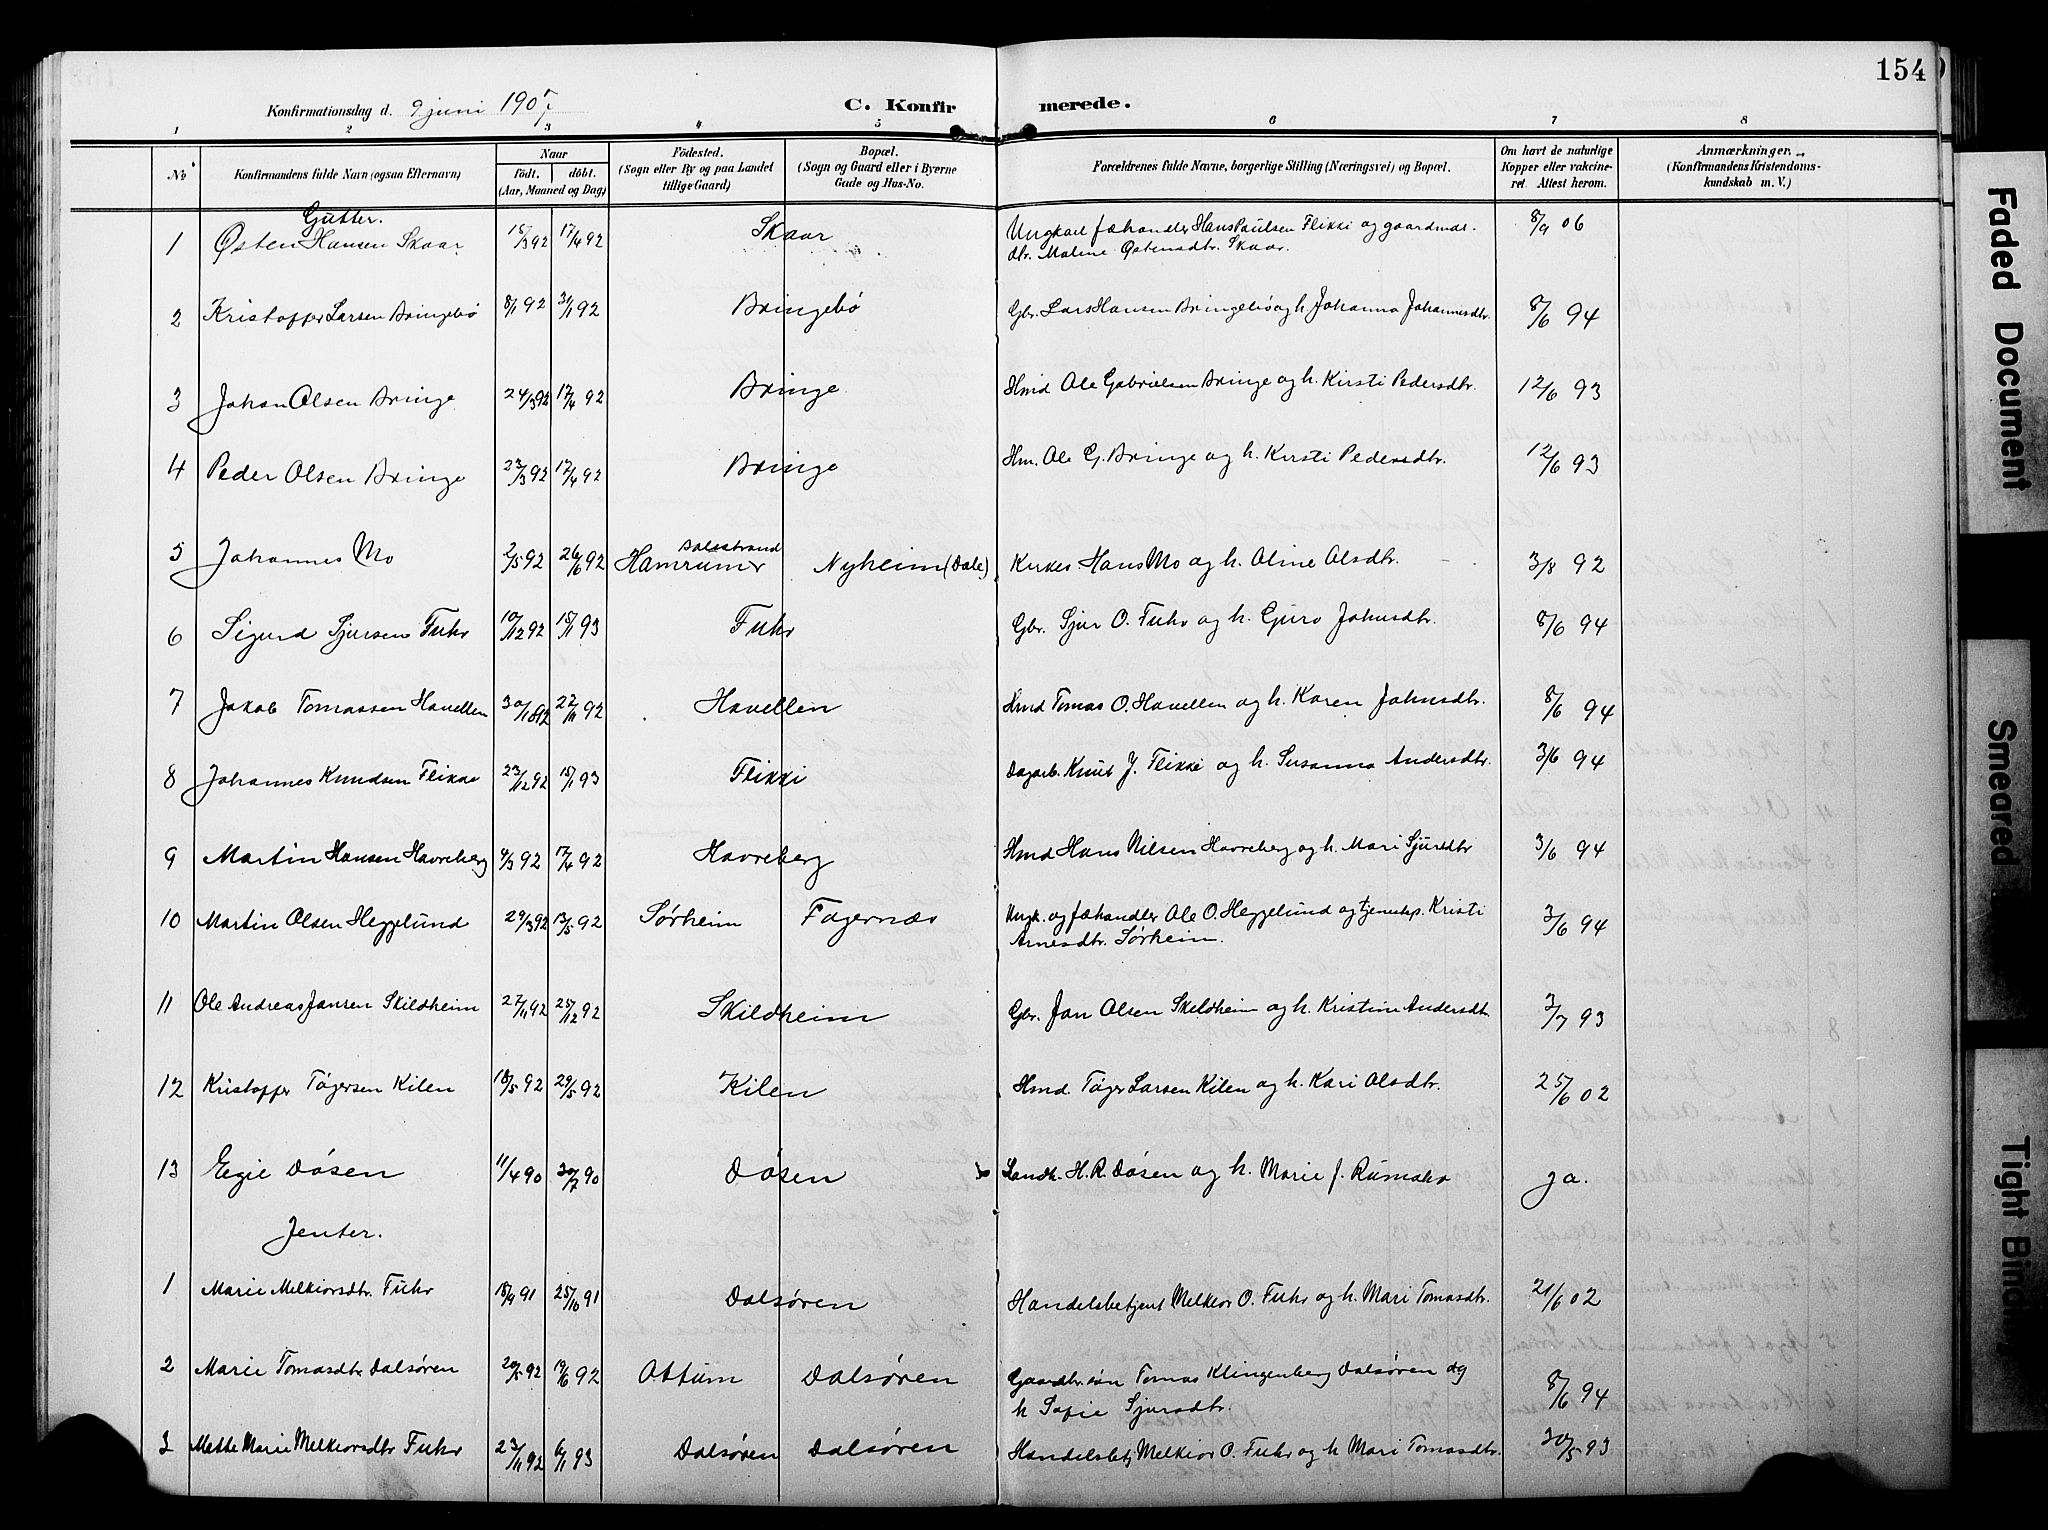 154
Konfirmationsdag d. 9 juni 1907
C. Konfirmerede.
1 2 3 4 5 6 7 8
No
Konfirmandens fulde Navn (ogsaa Efternavn)
Naar
födt. döbt.
(Aar, Maaned og Dag)
Födested.
(Sogn eller By og paa Landet
tillige Gaard)
Bopæl.
(Sogn og Gaard eller i Byerne
Gade og Hus-No.
Forældrenes fulde Navne, borgerlige Stilling (Næringsvei) og Bopæl.
Om havt de naturlige
Kopper eller vakcine-
ret. Attest herom.
Anmærkninger.
(Konfirmandens Kristendoms-
kundskab m. V.)
Gutter.
1 Østen Hansen Skaar 18/3 92 17/4 92 Skaar Ungkarl fæhandler Hans Paulsen Flikki og gaardmds-
dtr. Maline Østensdtr. Skaar. 8/9 06
2 Kristoffer Larsen Bringebö 8/1 92 31/1 92 Bringebö Gbr. Lars Hansen Bringebö og h. Johanna Johannesdtr. 8/6 94
3 Johan Olsen Bringe 24/3 92 17/4 92 Bringe Hmd Ole Gabrielsen Bringe og h. Kirsti Pedersdtr. 12/6 93
4 Peder Olsen Bringe 23/3 92 17/4 92 Bringe Hm. Ole G. Bringe og h. Kirsti Pedersdtr. 12/6 93
5 Johannes Mo 2/5 92 26/6 92 Dalsstrand
Hamrum Nyheim (Dale) Kirkes. Hans Mo og h. Oline Olsdtr. 3/8 92
6 Sigurd Sjursen Fuhr 10/12 92 15/1 93 Fuhr Gbr. Sjur O. Fuhr og h. Guro Johnsdtr. 8/6 94
7 Jakob Tomassen Havellen 30/10 92 27/11 92 Havellen Hmd Tomas O. Havellen og h. Karen Johnsdtr. 8/6 94
8 Johannes Knudsen Flikke 23/12 92 15/1 93 Flikki Dagarb. Knut J. Flikki og h. Susanna Andersdtr. 3/6 94
9 Martin Hansen Havreberg 4/3 92 17/4 92 Havreberg Hmd Hans Nilsen Havreberg og h. Mari Sjursdtr 3/6 94
10 Martin Olsen Heggelund 29/3 92 13/5 92 Sørheim Fagernæs Ungk. og fæhandler Ole O. Heggelund og tjenestep. Kristi
Arnesdtr. Sørheim. 3/6 94
11 Ole Andreas Jansen Skildheim 27/11 92 25/12 92 Skildheim Gbr. Jan Olsen Skildheim og h. Kristine Andersdtr. 3/7 93
12 Kristoffer Tøgersen Kilen 18/5 92 29/5 92 Kilen Hmd. Tøger Larsen Kilen og h. Kari Olsdtr. 25/6 02
13 Egie Døsen 11/4 90 20/7 90 Døsen Landh. H. R. Døsen og h. Marie J. Rumohr ja.
Jenter.
1 Marie Melkiorsdtr. Fuhr 18/9 91 25/10 91 Dalsøren Handelsbetjent Melkior O. Fuhr og h. Mari Tomasdtr. 21/6 02
2 Marie Tomasdtr Dalsøren 20/5 92 19/6 92 Ottum Dalsøren Gaardbr.søn Tomas Klingenberg Dalsøren og
h Sofie Sjursdtr. 8/6 94
3 Mette Marie Melkiorsdtr Fuhr 23/11 92 6/1 93 Dalsøren Dalsøren Handelsbetj Melkior O. Fuhr og h Mari Tomasdtr. 30/5 93
Faded Document
Smeared
Tight Binding